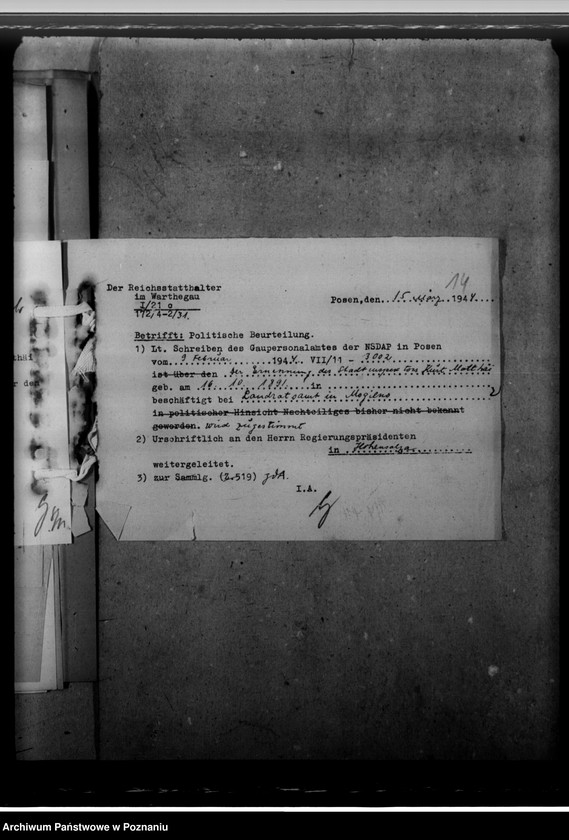 14
Der Reichsstatthalter
im Warthegau
I/21 o
172/4-2/31.
Posen, den 15. März 1944
Betrifft: Politische Beurteilung.
1) Lt. Schreiben des Gaupersonalamtes der NSDAP in Posen
vom 9. Februar 1944. VII/11 - 3002
ist über den der Ernennung des Stadtinspektors Kurt Matthäi
geb. am 16. 10. 1891 in
beschäftigt bei Landratsamt in Mogilno
in politischer Hinsicht Nachteiliges bisher nicht bekannt
geworden. wird zugestimmt
2) Urschriftlich an den Herrn Regierungspräsidenten
in Hohensalza
weitergeleitet.
3) zur Sammlg. (Z.519) z.d.A.
I.A.
thäi
r den
Archiwum Państwowe w Poznaniu